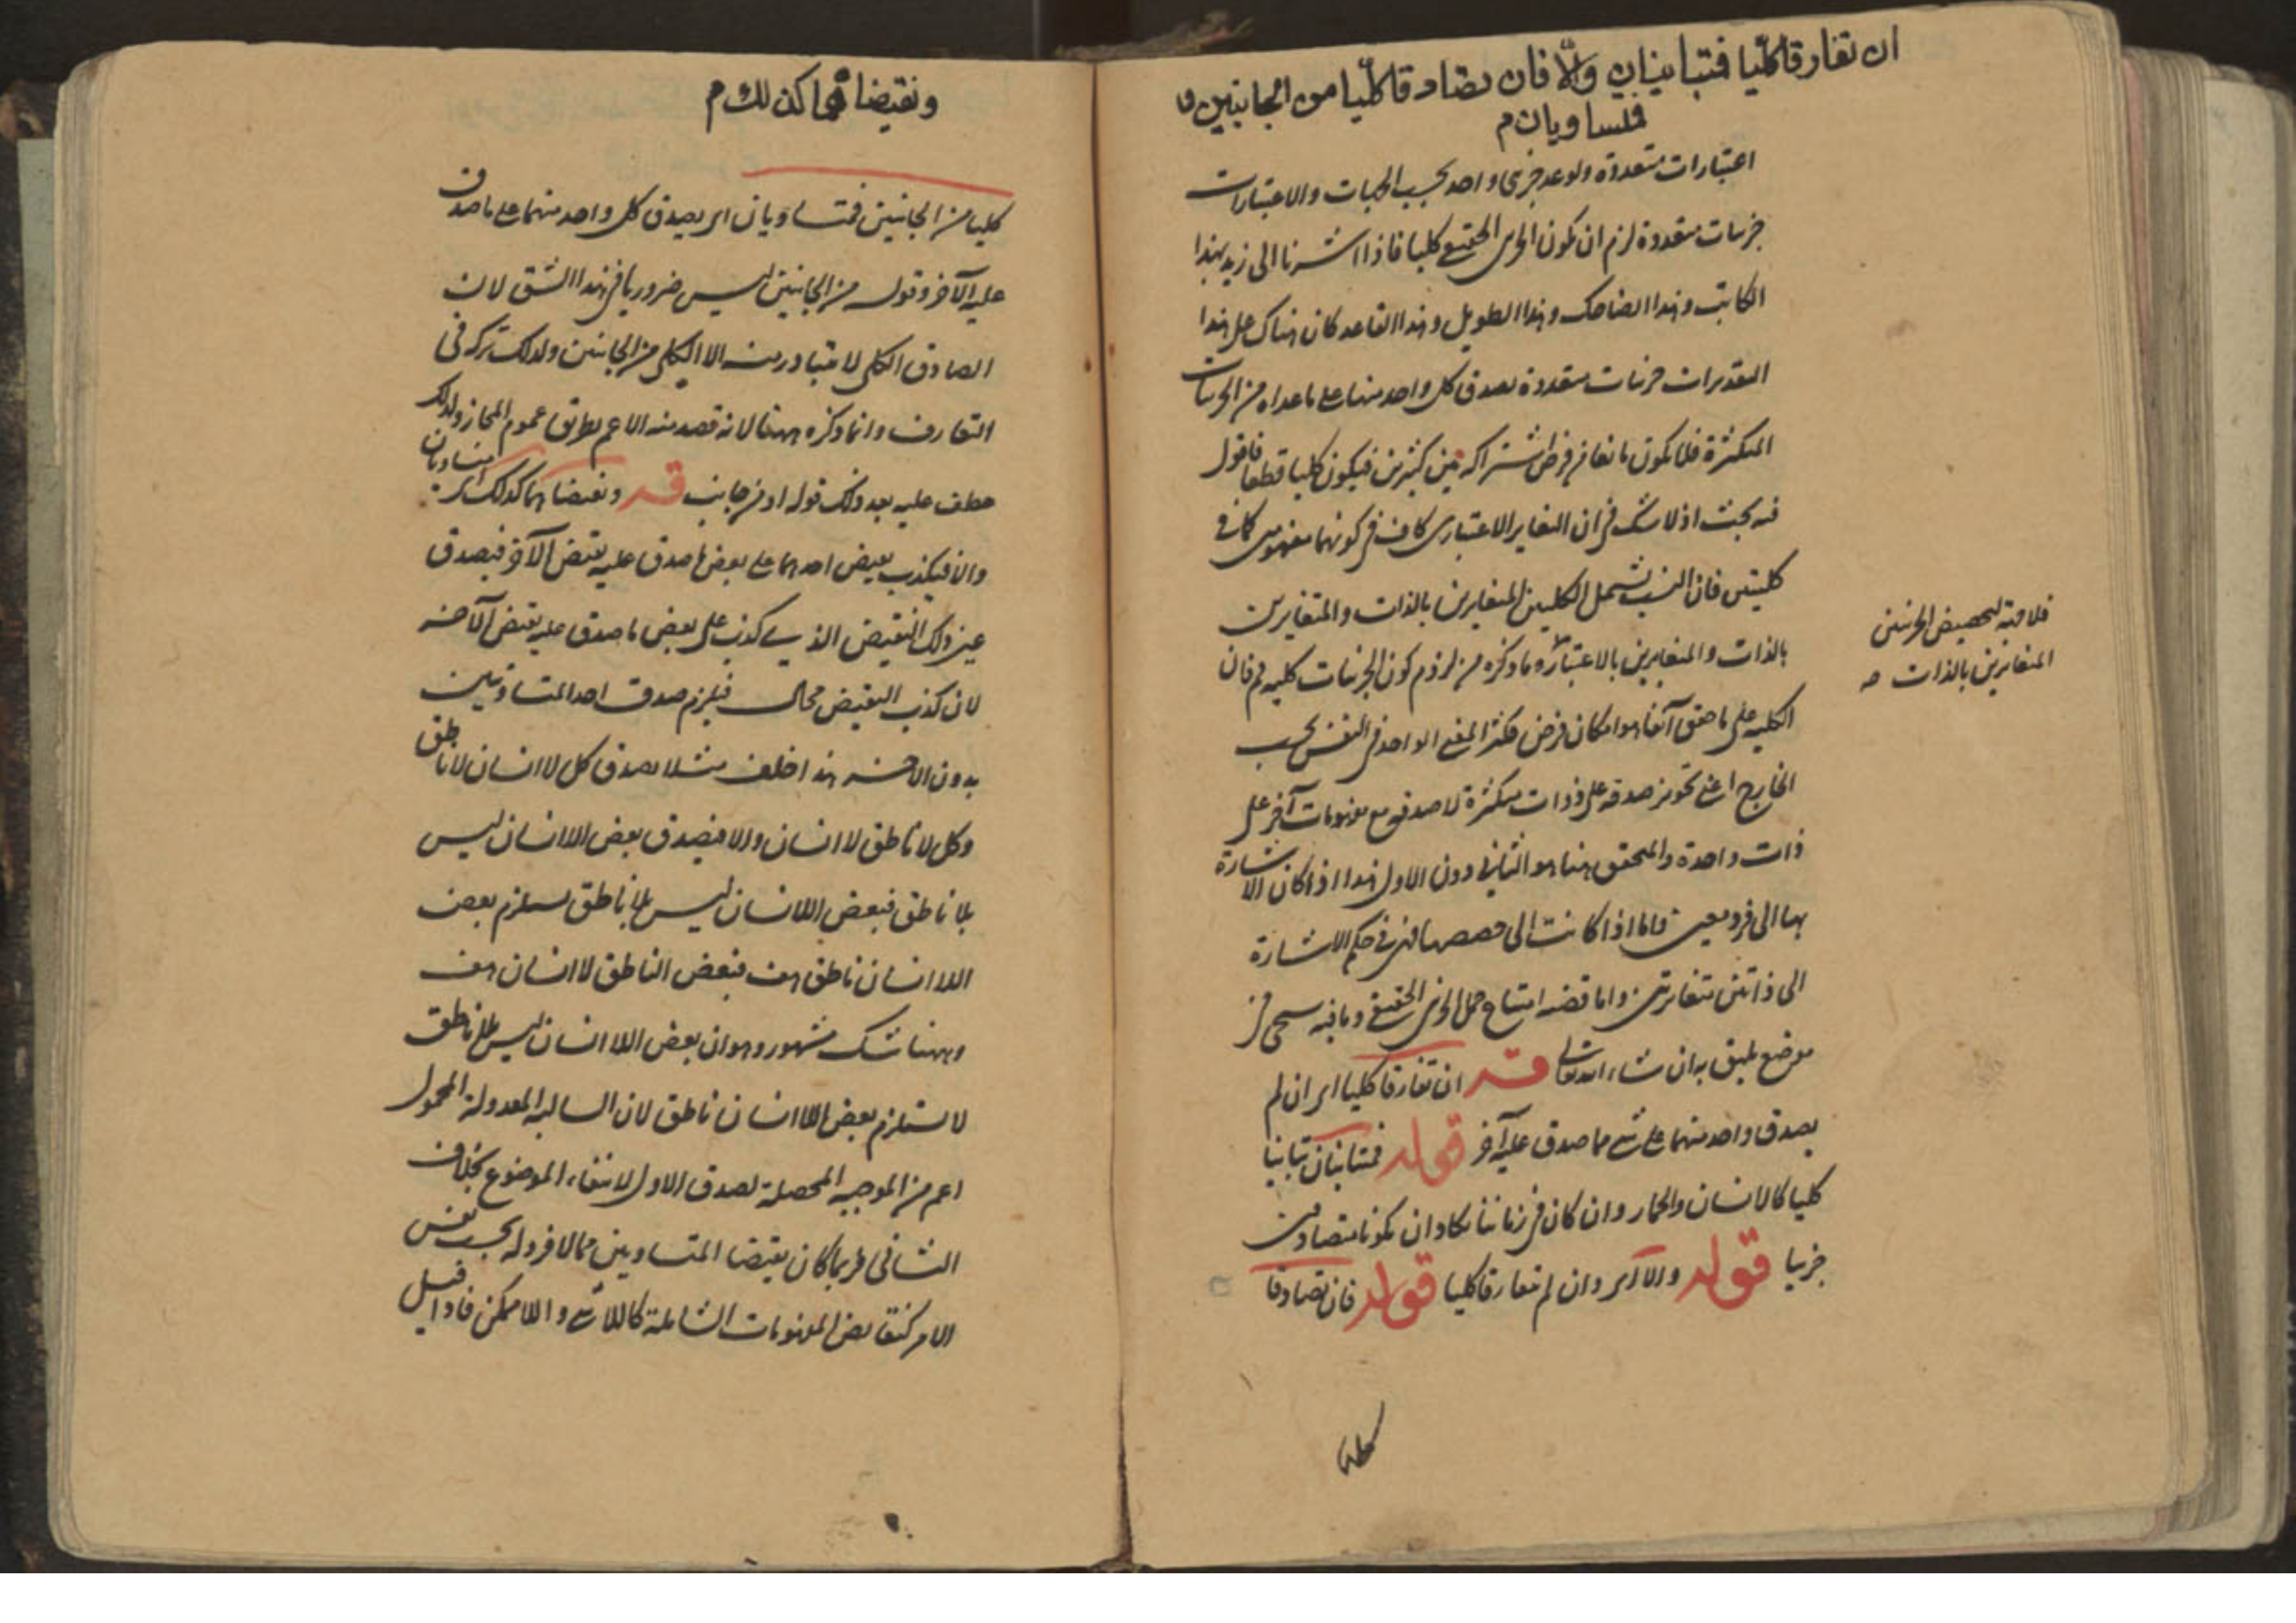 ان تفارقا كليّا فتباينان والّا فان تصادقا كليّا من الجانبين و
فتساويان م
اعتبارات متعددة ولو عد جزئى واحد بحسب الجهات والاعتبارات
جزئيات متعددة لزم ان يكون الجزئى الحقيقى كليا فاذا اشرنا الى زيد بهذا
الكاتب وهذا الضاحك وهذا الطويل وهذا القاعد كان هناك على هذا
التقديرات جزئيات متعددة يصدق كل واحد منها على ما عداه من الجزئيات
المتكثرة فلا يكون مانعا من فرض اشتراكه بين كثيرين فيكون كليا قطعا فاقول
فيه بحث اذ لا شك فى ان التغاير الاعتبارى كاف فى كونهما مفهومين كما فى
كليتين فان النسب تشمل الكليين المتغايرين بالذات والمتغايرين
بالذات والمتغايرين بالاعتبار وما ذكره من لزوم كون الجزئيات كليه م فان
فلا وجه لتخصيص الجزئيين
المتغايرين بالذات صه
الكليه على ما حقق آنفا هو امكان فرض تكثر المعنى الواحد فى النفس بحسب
الخارج اعنى تجويز صدقه على ذوات متكثرة لا صدقه مع مفهومات آخر على
ذات واحدة والمتحقق هنا هو الثانى دون الاول هذا اذا كان الاشارة
بها الى فرد معين فاما اذا كانت الى حصصها فهى فى حكم الاشارة
الى ذاتين متغايرتين واما قضيه امتناع حمل الجزئى الحقيقى وما فيه سيجىء فى
موضع يليق به ان شاء الله تعالى قـه ان تفارقا كليا اى ان لم
يصدق واحد منهما على شىء مما صدق عليه آخر قوله فمتباينان تباينا
كليا كالانسان والحمار وان كان فى زماننا يكاد ان يكونا متصادقين
جزئيا قوله والا اى وان لم تفارقا كليا قوله فان تصادقا
كليا
ونقيضاهما كذلك م
كليا من الجانبين فمتساويان اى يصدق كل واحد منهما على ما صدق
عليه الآخر وقوله من الجانبين ليس ضروريا فى هذا الشق لان
الصادق الكلى لا يتبادر منه الا الكلى من الجانبين ولذلك تركه فى
التفارق وانما ذكره ههنا لانه قصد منه الاعم بطريق عموم المجاز ولذلك
عطف عليه بعد ذلك قوله او من جانب قـه ونقيضاهما كذلك اى متساويان
والا فيكذب نقيض احدهما على بعض ما صدق عليه نقيض الآخر فيصدق
عين ذلك النقيض الذى كذب على بعض ما صدق عليه نقيض الآخر
لان كذب النقيض محال فيلزم صدق احد المتساويين
بدون الآخر هذا خلف مثلا يصدق كل لا انسان لا ناطق
وكل لا ناطق لا انسان والا فيصدق بعض اللا انسان ليس
بلا ناطق فبعض اللا انسان ليس بلا ناطق يستلزم بعض
اللا انسان ناطق هف فبعض الناطق لا انسان هف
وههنا شك مشهور وهو ان بعض اللا انسان ليس بلا ناطق
لا يستلزم بعض اللا انسان ناطق لان السالبه المعدولة المحمول
اعم من الموجبه المحصلة لصدق الاول لانتفاء الموضوع بخلاف
الثانى فربما كان نقيضا المتساويين مما لا فرد له بحسب نفس
الامر كنقايض المفهومات الشاملة كاللاشىء واللا ممكن فاذا قيل